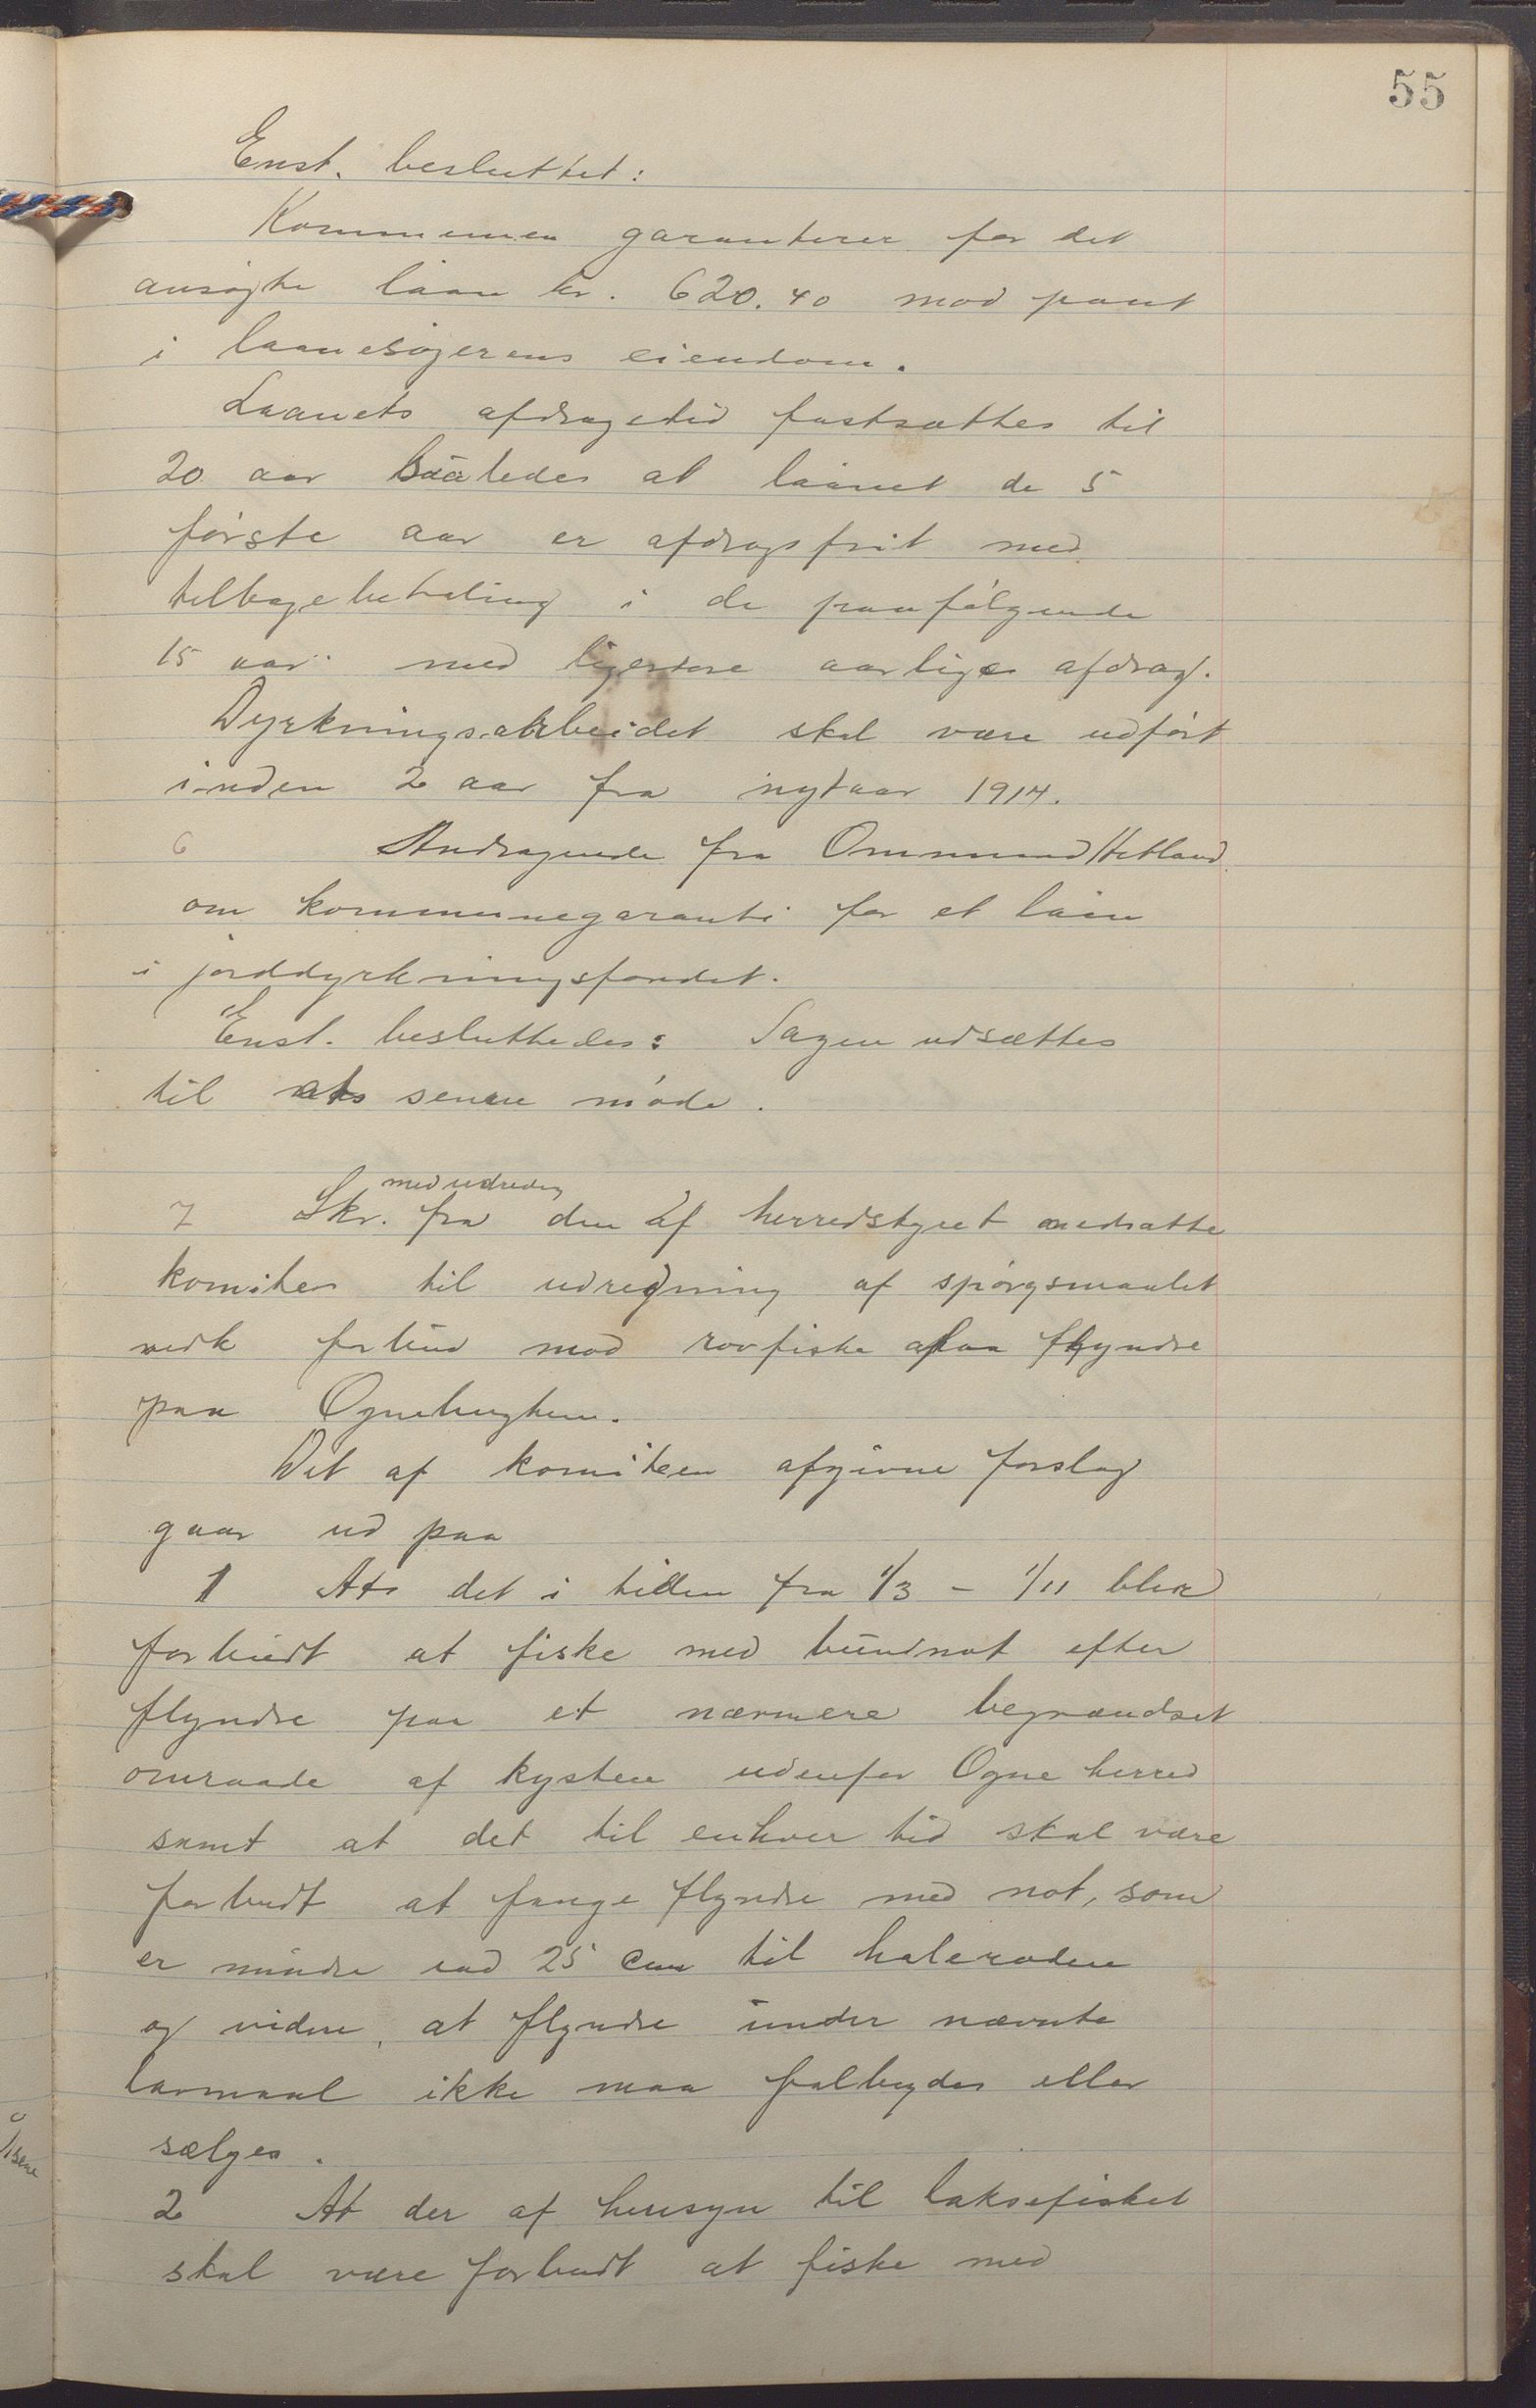 55
Enst. besluttet:
Kommunen garanterer for det
ansøgte laan kr. 620.40 mod pant
i laanesøgerens eiendom.
Laanets afdragstid fastsættes til
20 aar saaledes at laanet de 5
første aar er afdragsfrit med
tilbagebetaling i de paafølgende
15 aar med ligestore aarlige afdrag.
Dyrkningsarbeidet skal være udført
inden 2 aar fra nytaar 1914.
6 Andragende fra Ommund Hetland
om kommunegaranti for et laan
i jorddyrkningsfondet.
Enst. besluttedes: Sagen udsættes
til senere møde.
med udredn
7 Skr. fra den af herredstyret nedsatte
komite til udredning af spørgsmaalet
vedk forbud mod rovfiske paa flyndre
paa Ognebugten.
Det af komiteen afgivne forslag
gaar ud paa
1 At det i tiden fra 1/3 - 1/11 blir
forbudt at fiske med bundnot efter
flyndre paa et nærmere begrændset
omraade af kysten udenfor Ogne herred
samt at det til enhver tid skal være
forbudt at fange flyndre med not, som
er mindre end 25 cm til haleroden
og videre, at flyndre under nævnte
lavmaal ikke maa falbydes eller
sælges.
2 At der af hensyn til laksefisket
skal være forbudt at fiske med